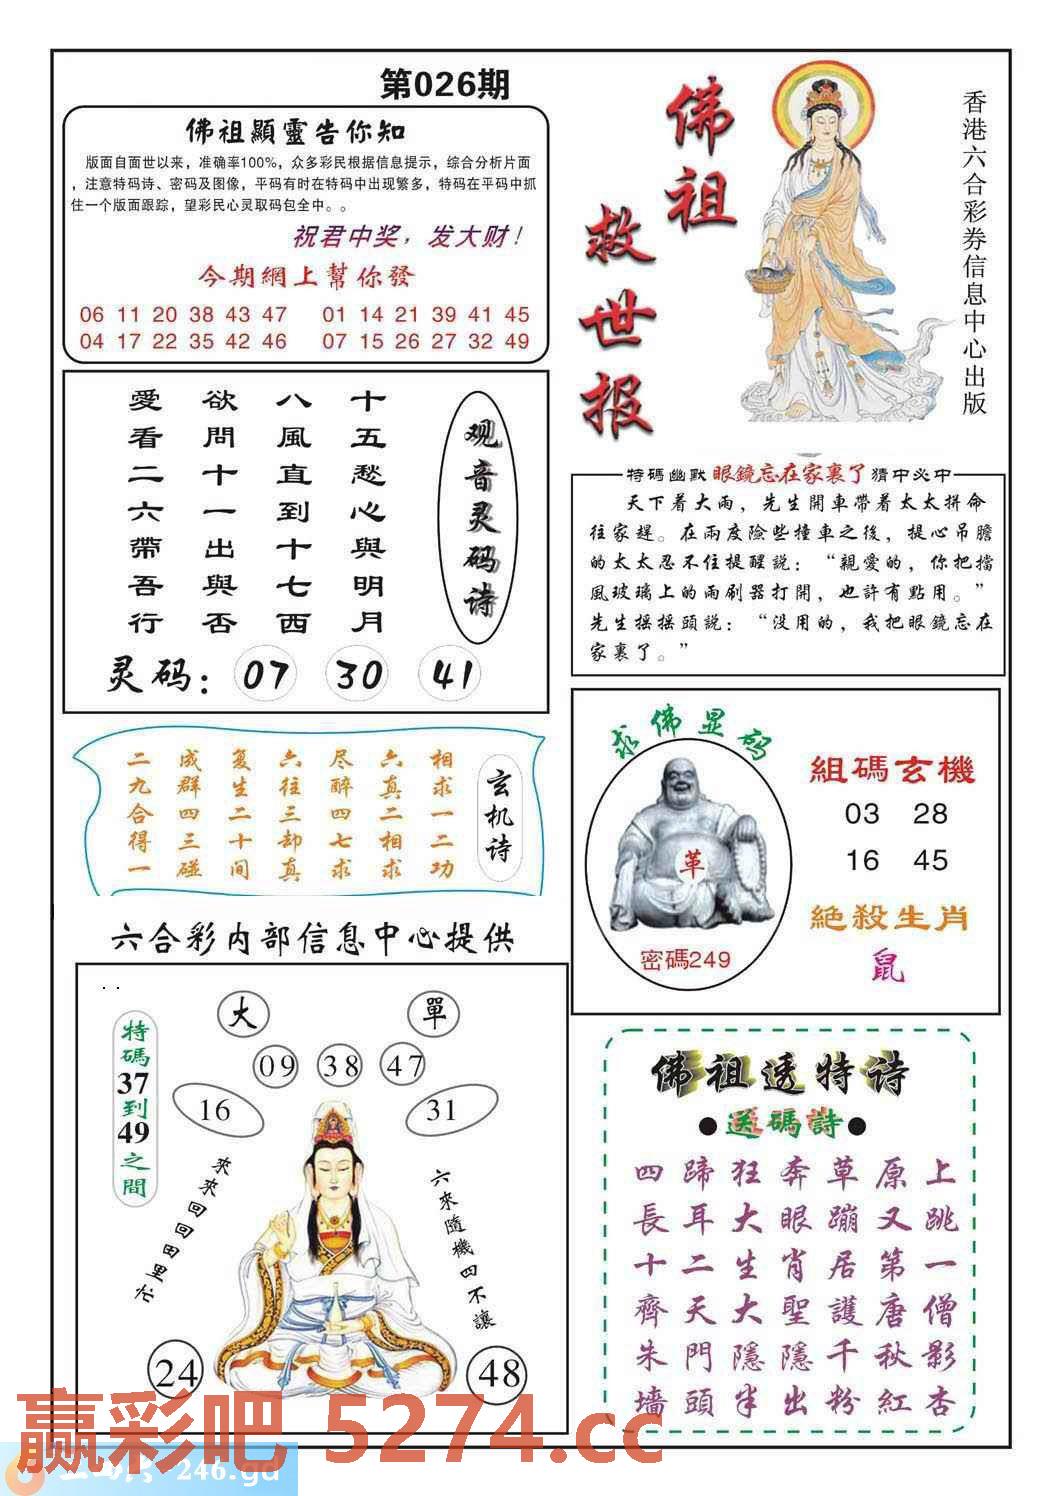 第026期
佛祖顯靈告你知
版面自面世以来，准确率100%，众多彩民根据信息提示，综合分析片面
，注意特码诗、密码及图像，平码有时在特码中出现繁多，特码在平码中抓
住一个版面跟踪，望彩民心灵取码包全中。。
祝君中奖，发大财！
今期網上幫你發
06 11 20 38 43 47 01 14 21 39 41 45
04 17 22 35 42 46 07 15 26 27 32 49
佛祖
救世报
香港六合彩券信息中心出版
观音灵码诗
十五愁心與明月
八風直到十七西
欲問十一出與否
愛看二六帶吾行
灵码：07 30 41
特碼幽默 眼鏡忘在家裏了 猜中必中
天下着大雨，先生開車帶着太太拼命
往家趕。在兩度險些撞車之後，提心吊膽
的太太忍不住提醒説：“親愛的，你把擋
風玻璃上的雨刷器打開，也許有點用。”
先生摇摇頭説：“没用的，我把眼鏡忘在
家裏了。”
玄机诗
相求一二功
六真二相求
尽醉四七求
六往三却真
复生二十间
成群四三碰
二九合得一
求佛显码
革
密碼249
組碼玄機
03 28
16 45
絶殺生肖
鼠
六合彩内部信息中心提供
大 單
09 38 47
16 31
特碼37到49之間
來來回回田里忙
六來隨機四不讓
24 48
佛祖透特诗
●送碼詩●
四蹄狂奔草原上
長耳大眼蹦又跳
十二生肖居第一
齊天大聖護唐僧
朱門隱隱千秋影
墻頭半出粉紅杏
赢彩吧 5274.cc
246.gd